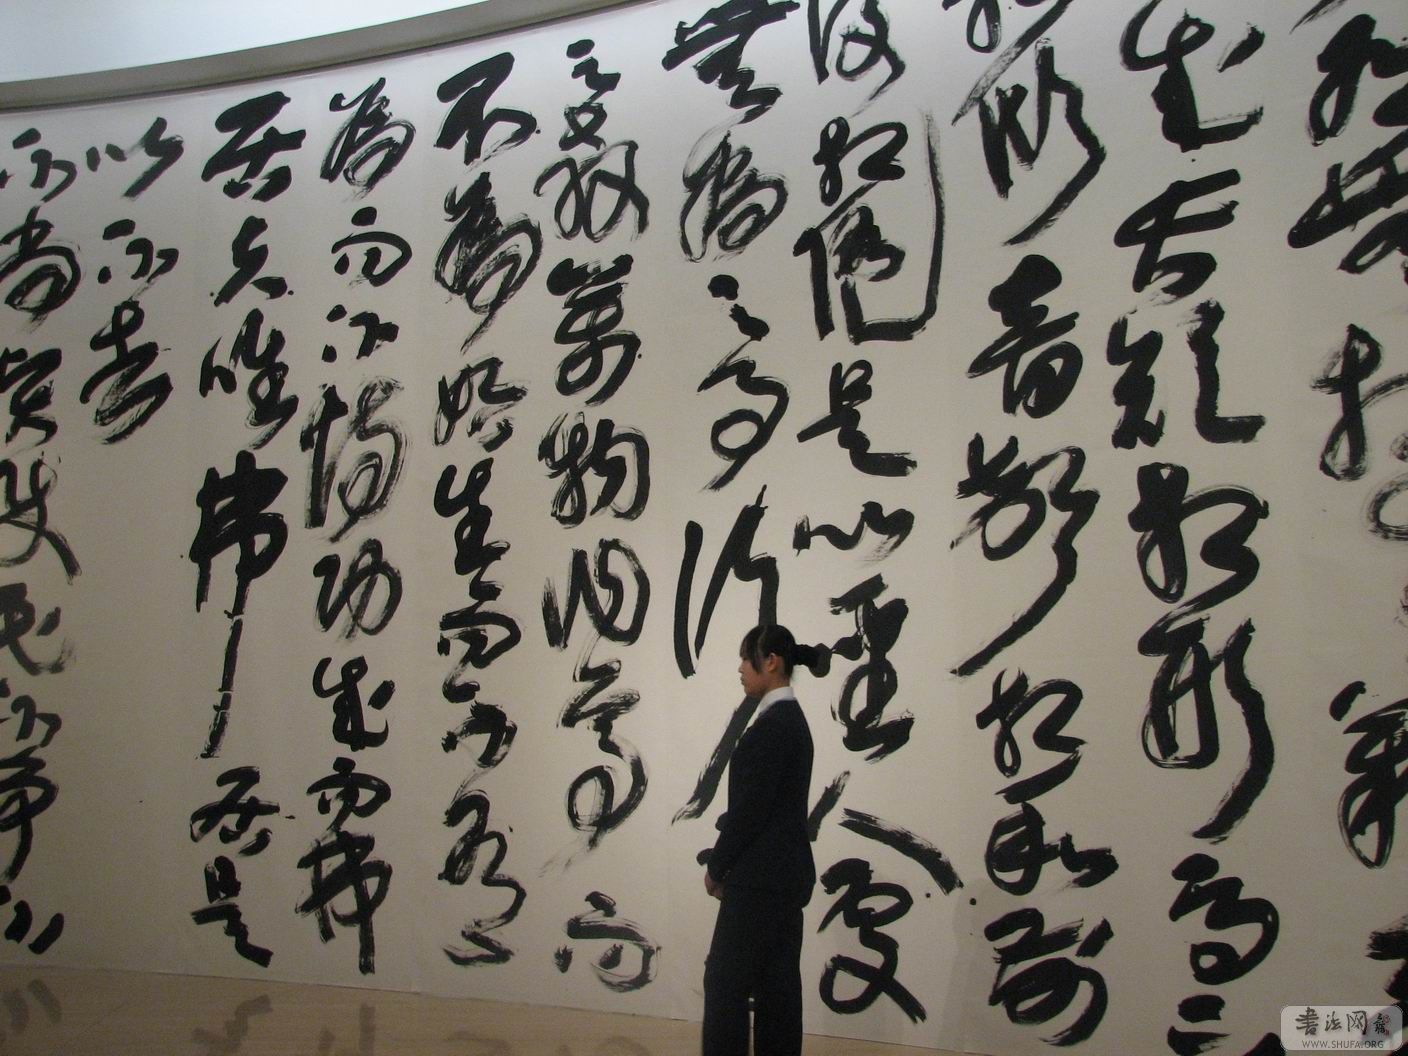 成長短相形高下
相傾音聲相和前
後相隨是以聖人處
無為之事行
之教萬物作焉而
不為始生而不有
為而不恃功成而弗
居夫唯弗居是
以不去
不尚賢使民不爭不
書法网
WWW.SHUFA.ORG